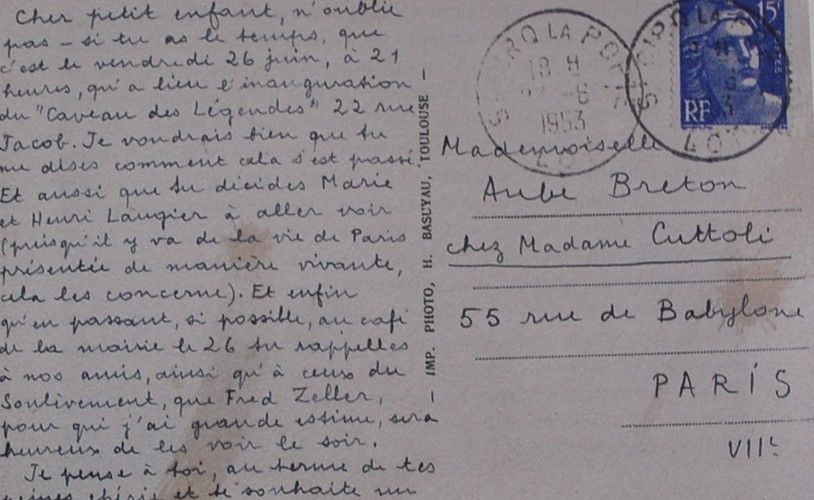 Cher petit enfant, n'oublie
pas – si tu as le temps, que
c'est le vendredi 26 juin, à 21
heures, qu'a lieu l'inauguration
du "Caveau des Légendes" 22 rue
Jacob. Je voudrais bien que tu
me dises comment cela s'est passé.
Et aussi que tu décides Marie
et Henri Laugier à aller voir
(puisqu'il y va de la vie de Paris
présentée de manière vivante,
cela les concerne). Et enfin
qu'en passant, si possible, au café
de la mairie le 26 tu rappelles
à nos amis, ainsi qu'à ceux du
Soulèvement, que Fred Zeller,
pour qui j'ai grande estime, sera
heureux de les voir le soir.
Je pense à toi, au terme de tes
chérie et te souhaite un
— IMP. PHOTO, H. BASUYAU, TOULOUSE —
ST CIRQ LA POPIE
18 H
-6
1953
LOT
ST CIRQ LA
LOT
15F
POSTES
RF
Mademoiselle
Aube Breton
chez Madame Cuttoli
55 rue de Babylone
PARIS
VIIe